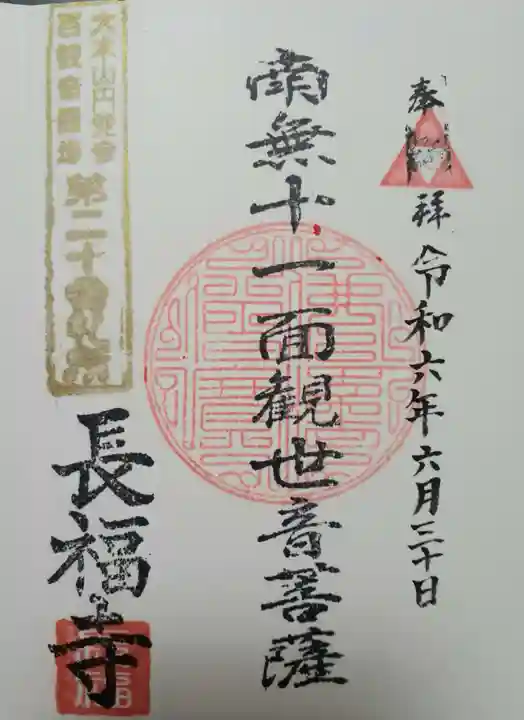 奉拝 令和六年六月三十日
南無十一面観世音菩薩
百観音霊場
第二十
長福寺